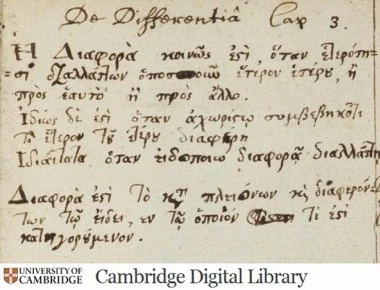 De Differentiâ Cap 3.
Ἡ Διαφορὰ κοινῶς ἐστὶ, ὅταν ἑτερότη-
=τι διαλλάττων ὁποτεοιοῦν ἕτερον ἑτέρου, ἢ
πρὸς ἑαυτὸ ἢ πρὸς ἄλλο.
Ἰδίως δὲ ἐστὶ ὅταν ἀχωρίστῳ συμβεβηκότι
τὸ ἕτερον τοῦ ἑτέρου διαφέρῃ
Ἰδιαίτατα ὅταν εἰδοποιῷ διαφορᾷ διαλλάττῃ
Διαφορὰ ἐστὶ τὸ κτ πλειόνων κς διαφερόν-
των τῷ εἴδει, ἐν τῷ ὁποῖόν τί ἐστὶ
κατηγορούμενον.
UNIVERSITY OF
CAMBRIDGE
Cambridge Digital Library